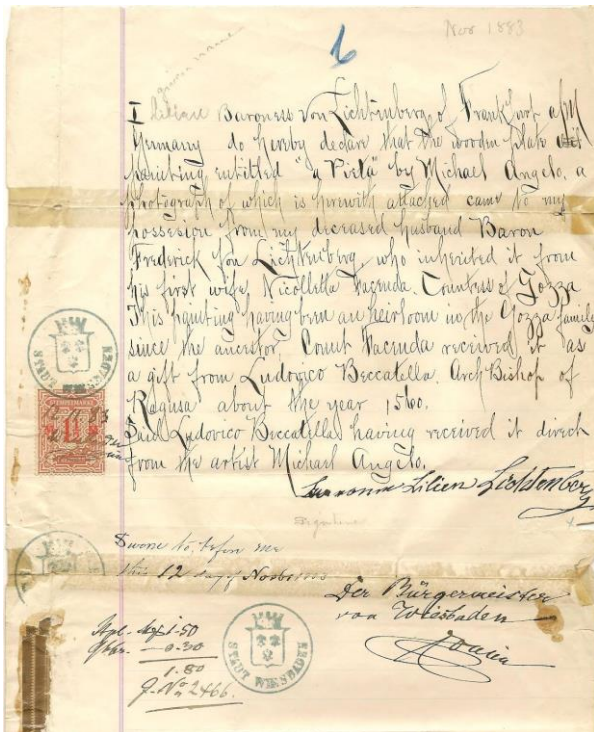 Nov 1883
I Liliane Baroness von Lichtenberg of Frankfurt a/M
Germany do hereby declare that the wooden plate
painting entitled "a Pietà" by Michael Angelo, a
photograph of which is herewith attached came to my
possession from my deceased husband Baron
Frederick von Lichtenberg, who inherited it from
his first wife, Nicolletta Facenda. Countess of Gozza
This painting having been an heirloom in the Gozza family
since the ancestor, Count Facenda received it as
a gift from Ludovico Beccatella. Arch Bishop of
Ragusa about the year 1560.
Said Ludovico Beccatella having received it direct
from the artist Michael Angelo.
STADT WIESBADEN
Lilien Lichtenberg
Signature
Sworn to, before me
this 12 day of
Der Bürgermeister
von Wiesbaden
1.50
0.30
1.80
J. No 2466.
STADT WIESBADEN